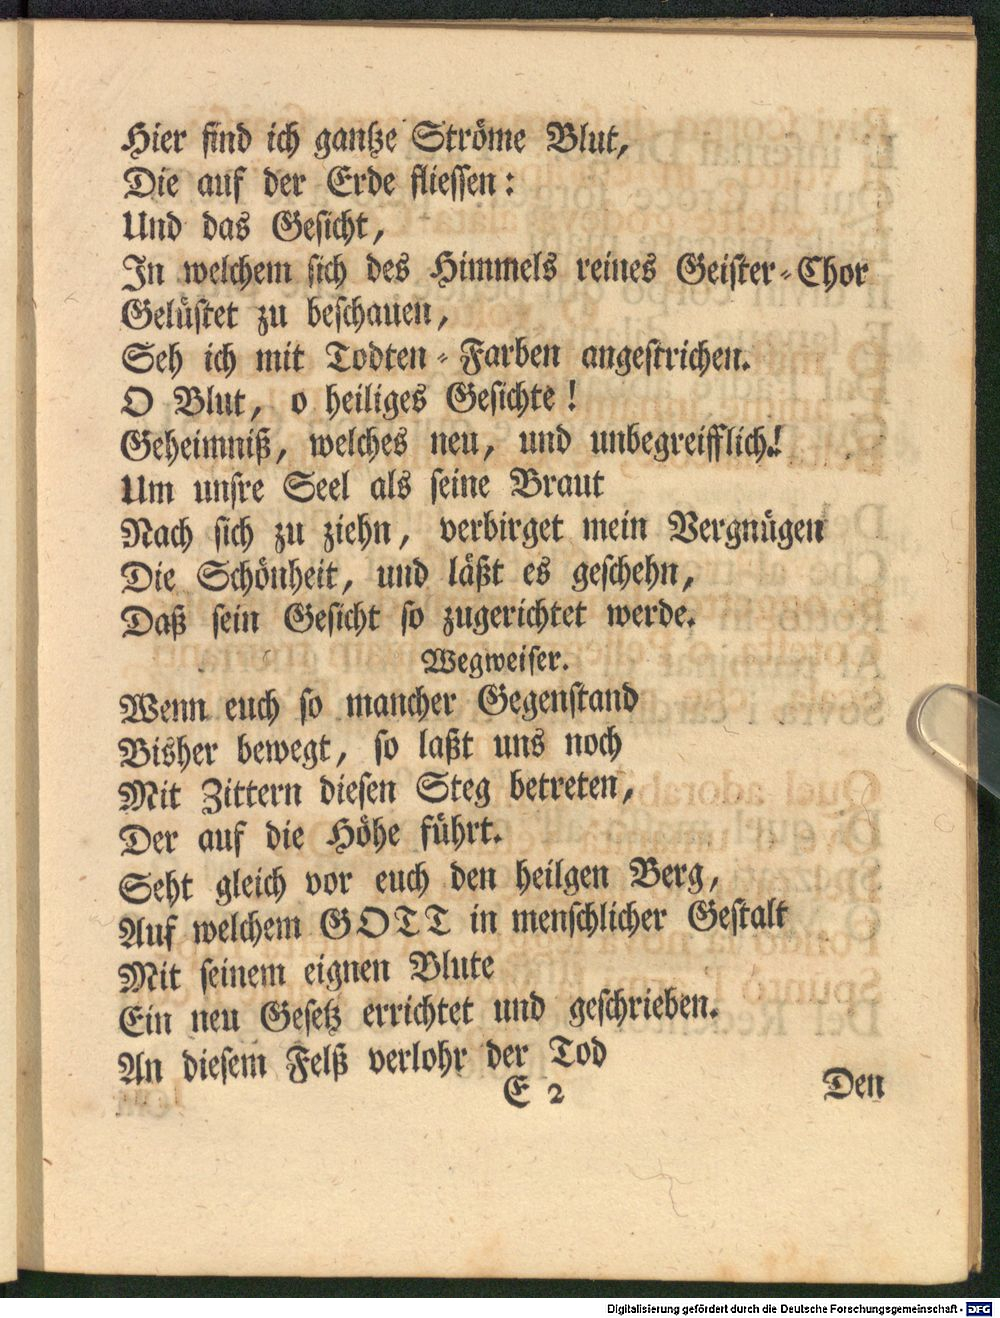 Hier find ich gantze Ströme Blut,
Die auf der Erde fliessen:
Und das Gesicht,
In welchem sich des Himmels reines Geister-Chor
Gelüstet zu beschauen,
Seh ich mit Todten-Farben angestrichen.
O Blut, o heiliges Gesichte!
Geheimniß, welches neu, und unbegreifflich!
Um unsre Seel als seine Braut
Nach sich zu ziehn, verbirget mein Vergnügen
Die Schönheit, und läßt es geschehn,
Daß sein Gesicht so zugerichtet werde.
Wegweiser.
Wenn euch so mancher Gegenstand
Bisher bewegt, so laßt uns noch
Mit Zittern diesen Steg betreten,
Der auf die Höhe führt.
Seht gleich vor euch den heilgen Berg,
Auf welchem GOTT in menschlicher Gestalt
Mit seinem eignen Blute
Ein neu Gesetz errichtet und geschrieben.
An diesem Felß verlohr der Tod
E 2 Den
Digitalisierung gefördert durch die Deutsche Forschungsgemeinschaft - DFG